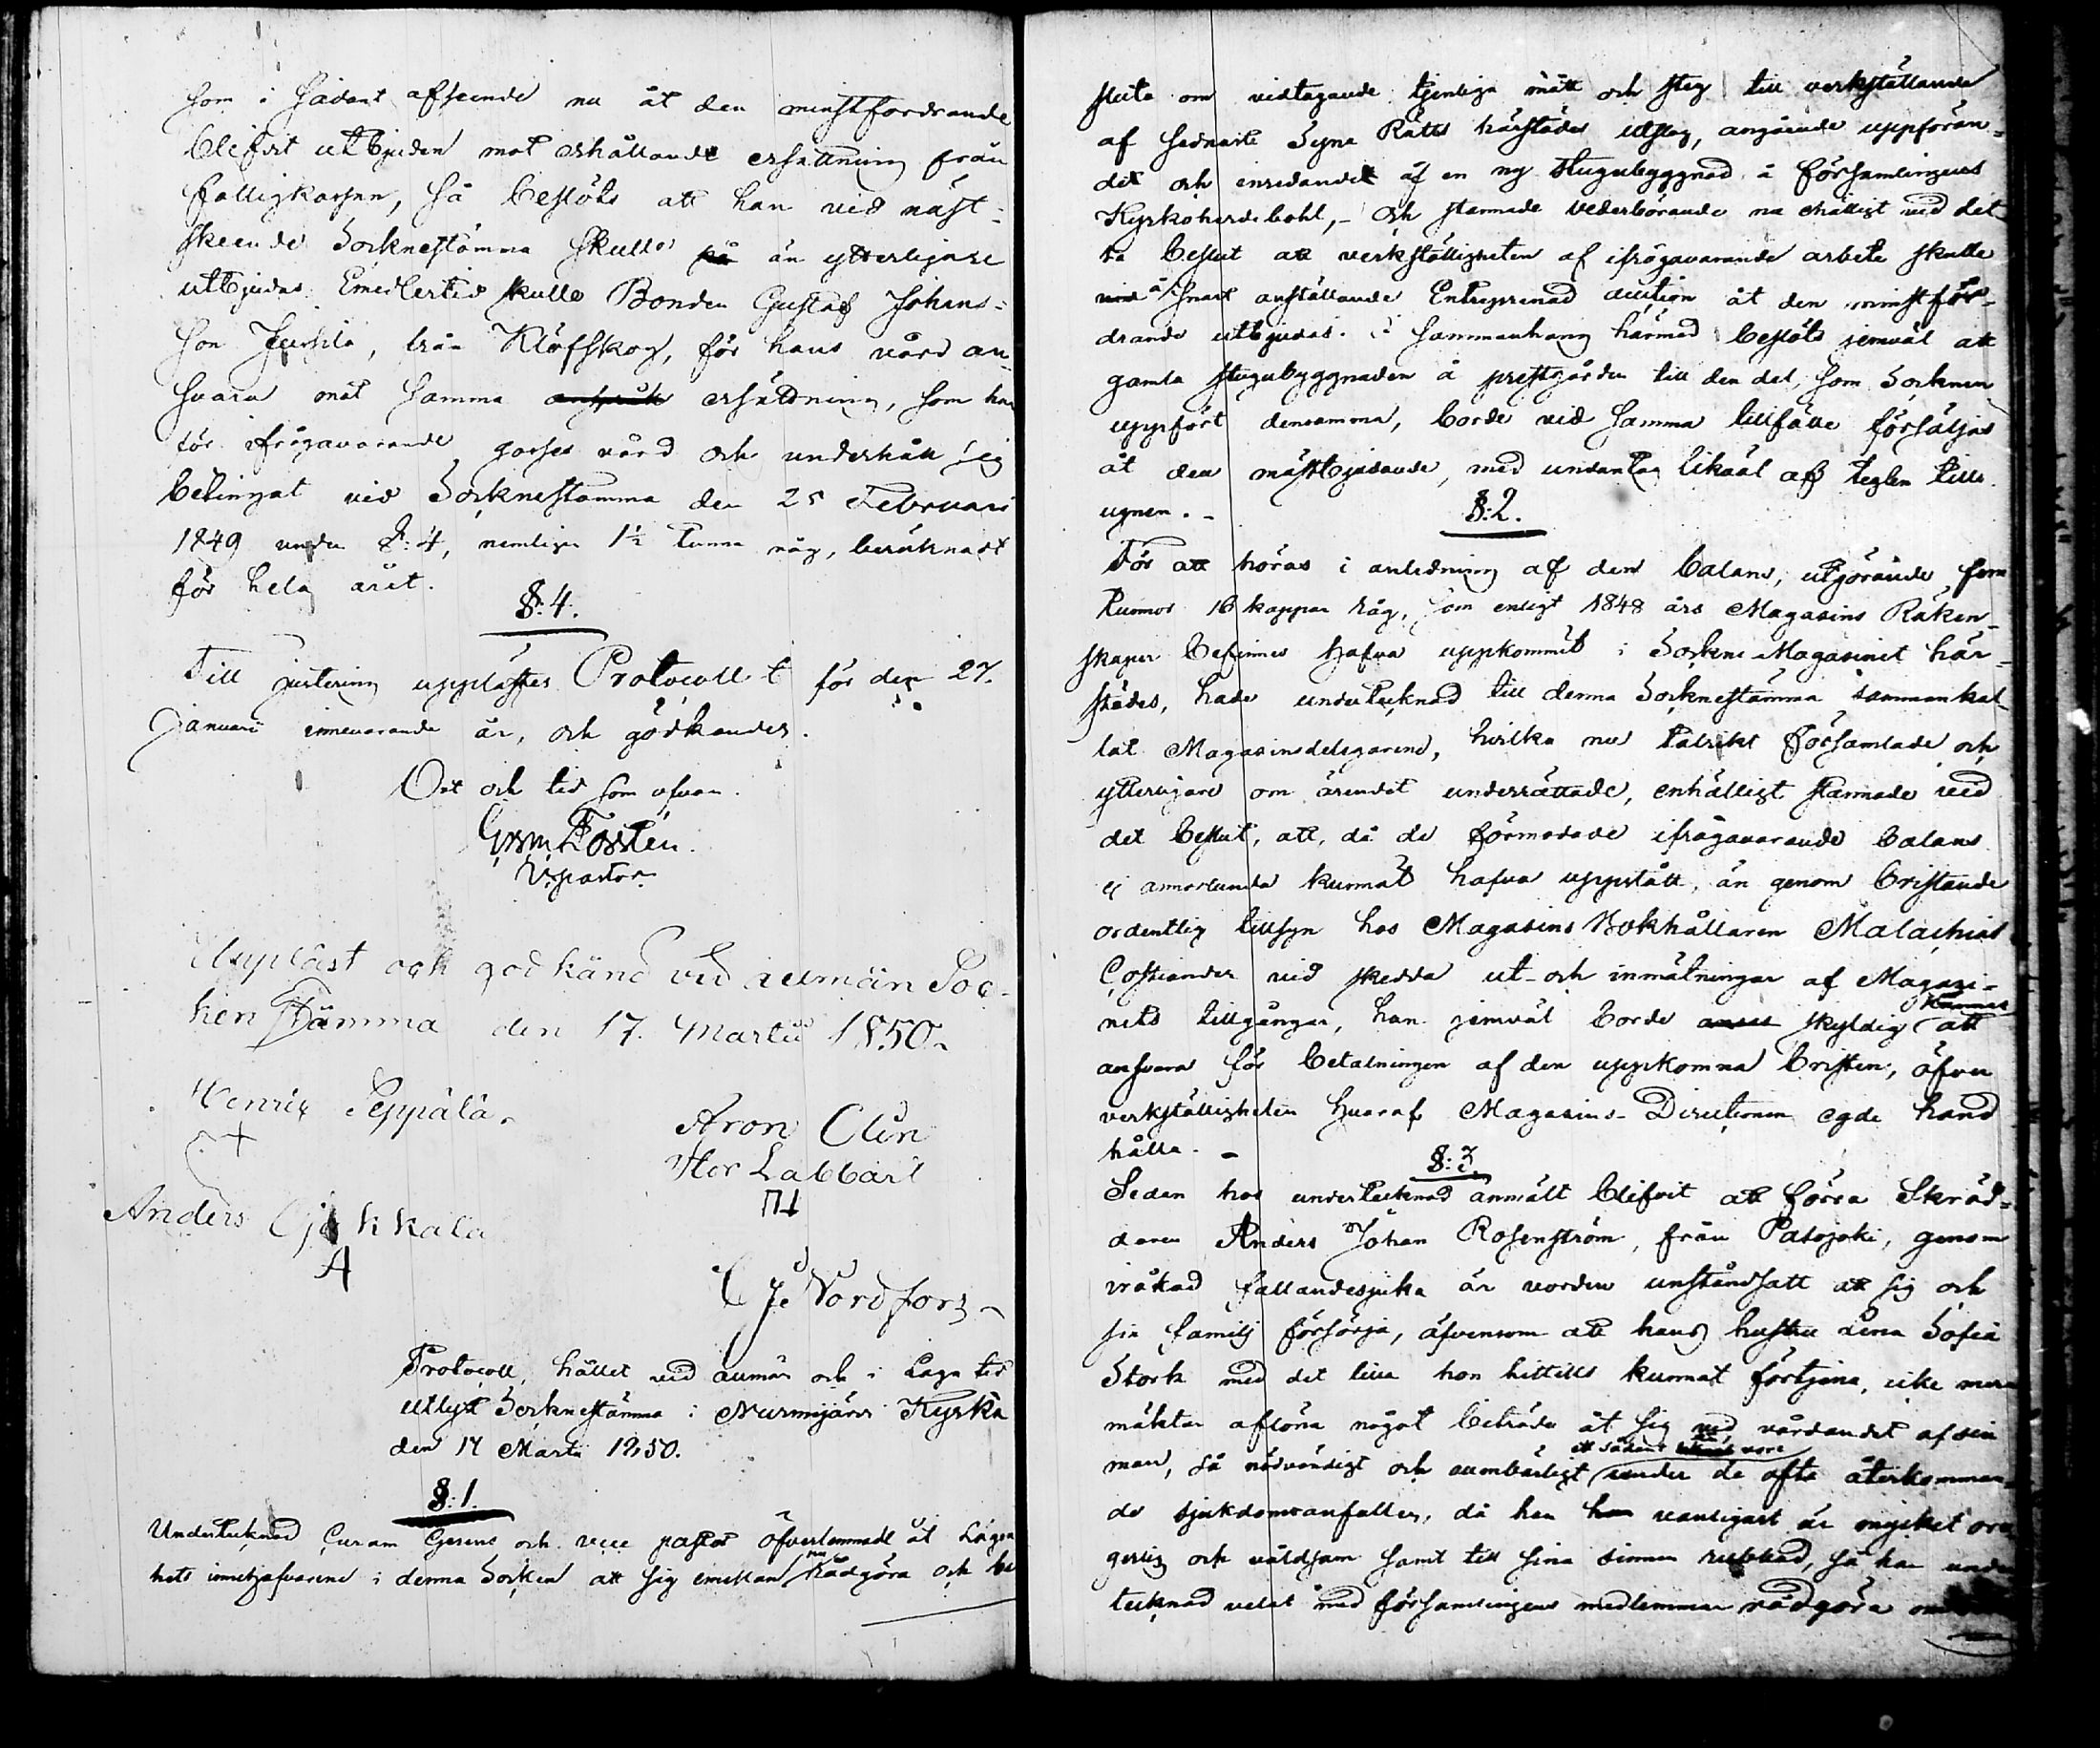 som i sådant afseende nu åt den minstfordrande
blifvit utbjuden mot erhållande ersättning från
fattigkassan, så beslöts att han vid näst-
skeende Socknestämma skulle på än ytterligare
utbjudas. Emedlertid skulle Bonden Gustaf Johans-
son Jussila, från Klöfskog, för hans vård an-
svara mot samma anspråk ersättning, som han
för ifrågavarande gosses vård och underhåll sig
betingat vid Socknestämma den 25 Februari
1849 under §: 4, nemligen 1½ Tunna råg, beräknadt
för hela året.
§: 4.
Till justering upplästes Protocollet för den 27.
Januarii innevarande år, och godkändes.
Ort och tid som ofvan.
V. pastor
Uppläst och godkänd vid allmän Soc-
ken Stämma den 17. Martii 1850.
Henrik Seppälä.
Aron Clen
Hor Labbart
Anders Ojakkala
A
C Je Nordfors
Protocoll, hållet vid allmän och i Laga tid
utlyst Socknestämma i Nurmijärvi Kyrka
den 17 Martii 1850.
§: 1.
Undertecknad Curam Gerens och vice pastor öfverlemnade åt Lägen-
hets innehafvarene i denna Socken att sig emellan nu rådgöra och be-
sluta om vidtagande tjenliga mått och steg till verkställande
af sednaste Syne Rätts härstädes utslag, angående upföran-
det och inredandet af en ny Stugubyggnad å församlingens
Kyrkoherdebohl, - Och stannade vederbörande nu enhälligt vid det
ta beslut att verkställigheten af ifrågavarande arbete skulle
vid å snart anställande Entreprenad auction åt den minstfor-
drande utbjudas. I sammanhang härmed beslöts jemväl att
gamla stugubyggnaden å prestgården till den del, som Socknen
uppfört densamma, borde vid samma tillfälle försäljas
åt den mästbjudande, med undantag likväl af teglen till
ugnen. -
§: 2.
För att höras i anledning af den balans, utgörande fem
Tunnor 16 kappar råg, som enligt 1848 års Magasins Räken-
skaper befinnes hafva uppkommit i Sockne Magasinet här-
städes, hade undertecknad till denna Socknestämma sammankal-
lat Magasinsdelegarene, hvilka nu talrikt församlade och
ytterligare om ärendet underrättade, enhälligt stannade vid
det beslut, att, då de förmodade ifrågavarande balans
ej annorlunda kunnat hafva uppstått, än genom bristande
ordentlig tillsyn hos Magasins Bokhållaren Malachias
Costiander vid skedda ut- och inmätningar af Magasi-
nets tillgångar, han jemväl borde anses skyldig kännas att
ansvara för betalningen af den uppkomna bristen, öfver
verkställigheten hvaraf Magasins-Directionen egde hand
hålla. -
§: 3.
Sedan hos undertecknad anmält blifvit att förra Skräd-
daren Anders Johan Rosenström, från Palojoki, genom
iråkad fallandesjuka är vorden urståndsatt att sig och
sin familj försörja, äfvensom att hans hustru Lena Sofia
Stork med det lilla hon hittills kunnat förtjena, icke mera
mäktar aflöna något biträde åt sig vid vårdandet af sin
man, så nödvändigt och oumbärligt än ett sådant vore under de ofta återkomman-
de sjukdomsanfallen, då han vanligast är mycket ore-
gerlig och våldsam samt till sina sinnen rubbad, så har under-
tecknad velat med församlingens medlemmar rådgöra om